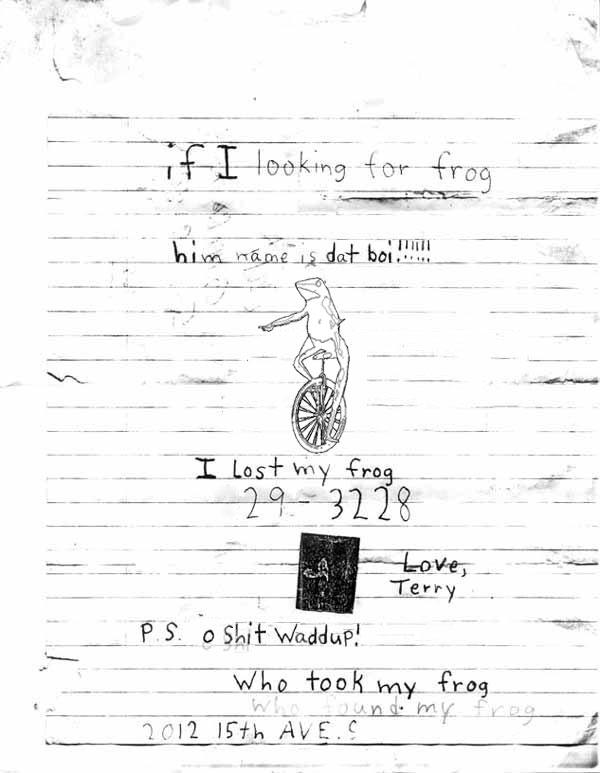 if I looking for frog
him name is dat boi!!!!!!
I lost my frog
29-3228
Love,
Terry
P.S. o shit waddup!
Who took my frog
who found my frog
2012 15th AVE. S